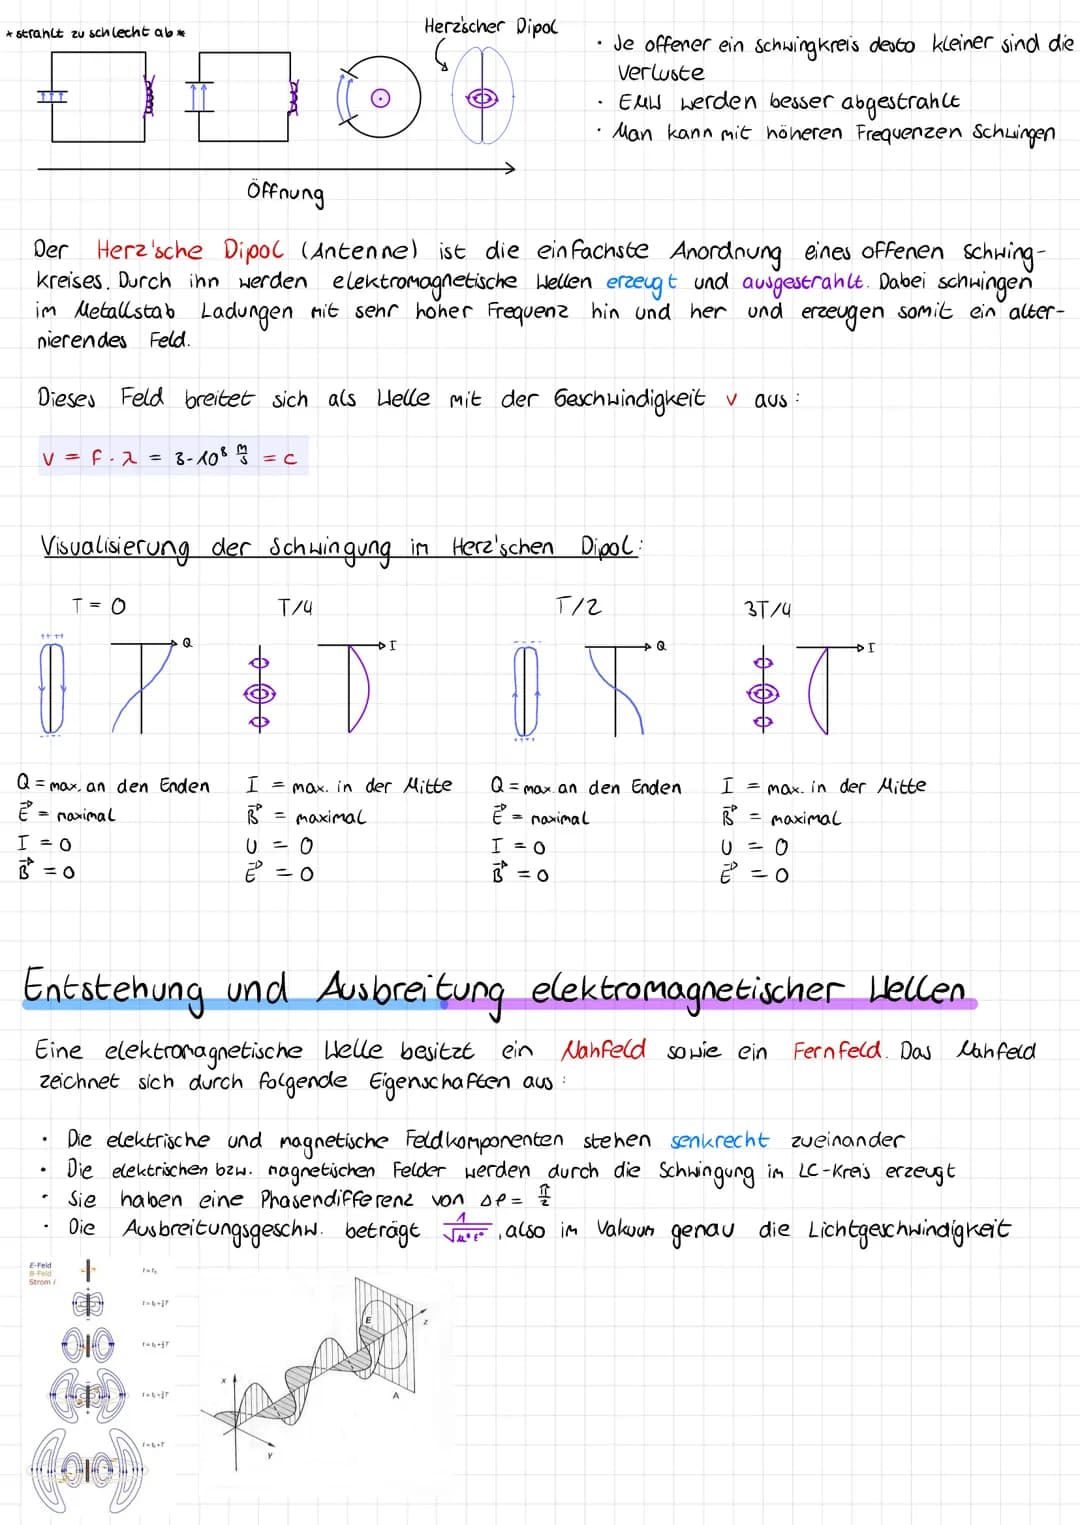 * strahlt zu schlecht ab *
Herz'scher Dipol
· Je offener ein Schwingkreis desto kleiner sind die
Verluste
· EMW werden besser abgestrahlt
· Man kann mit höheren Frequenzen Schwingen
Öffnung
Der Herz'sche Dipol (Antenne) ist die einfachste Anordnung eines offenen Schwing-
kreises. Durch ihn werden elektromagnetische Wellen erzeugt und ausgestrahlt. Dabei schwingen
im Metallstab Ladungen mit sehr hoher Frequenz hin und her und erzeugen somit ein alter-
nierendes Feld.
Dieses Feld breitet sich als Welle mit der Geschwindigkeit v aus:
v = f · λ = 3·10⁸ m/s = c
Visualisierung der Schwingung im Herz'schen Dipol:
T = 0 T/4 T/2 3T/4
++ ++ Q I ---- Q I
---- ++++
Q = max. an den Enden I = max. in der Mitte Q = max. an den Enden I = max. in der Mitte
E⃗ = maximal B⃗ = maximal E⃗ = maximal B⃗ = maximal
I = 0 U = 0 I = 0 U = 0
B⃗ = 0 E⃗ = 0 B⃗ = 0 E⃗ = 0
Entstehung und Ausbreitung elektromagnetischer Wellen
Eine elektromagnetische Welle besitzt ein Nahfeld sowie ein Fernfeld. Das Nahfeld
zeichnet sich durch folgende Eigenschaften aus:
· Die elektrische und magnetische Feldkomponenten stehen senkrecht zueinander
· Die elektrischen bzw. magnetischen Felder werden durch die Schwingung im LC-Kreis erzeugt
· Sie haben eine Phasendifferenz von Δφ = π/2
· Die Ausbreitungsgeschw. beträgt 1/√μ·ε, also im Vakuum genau die Lichtgeschwindigkeit
E-Feld
B-Feld
Strom I
E
z
x
A
y